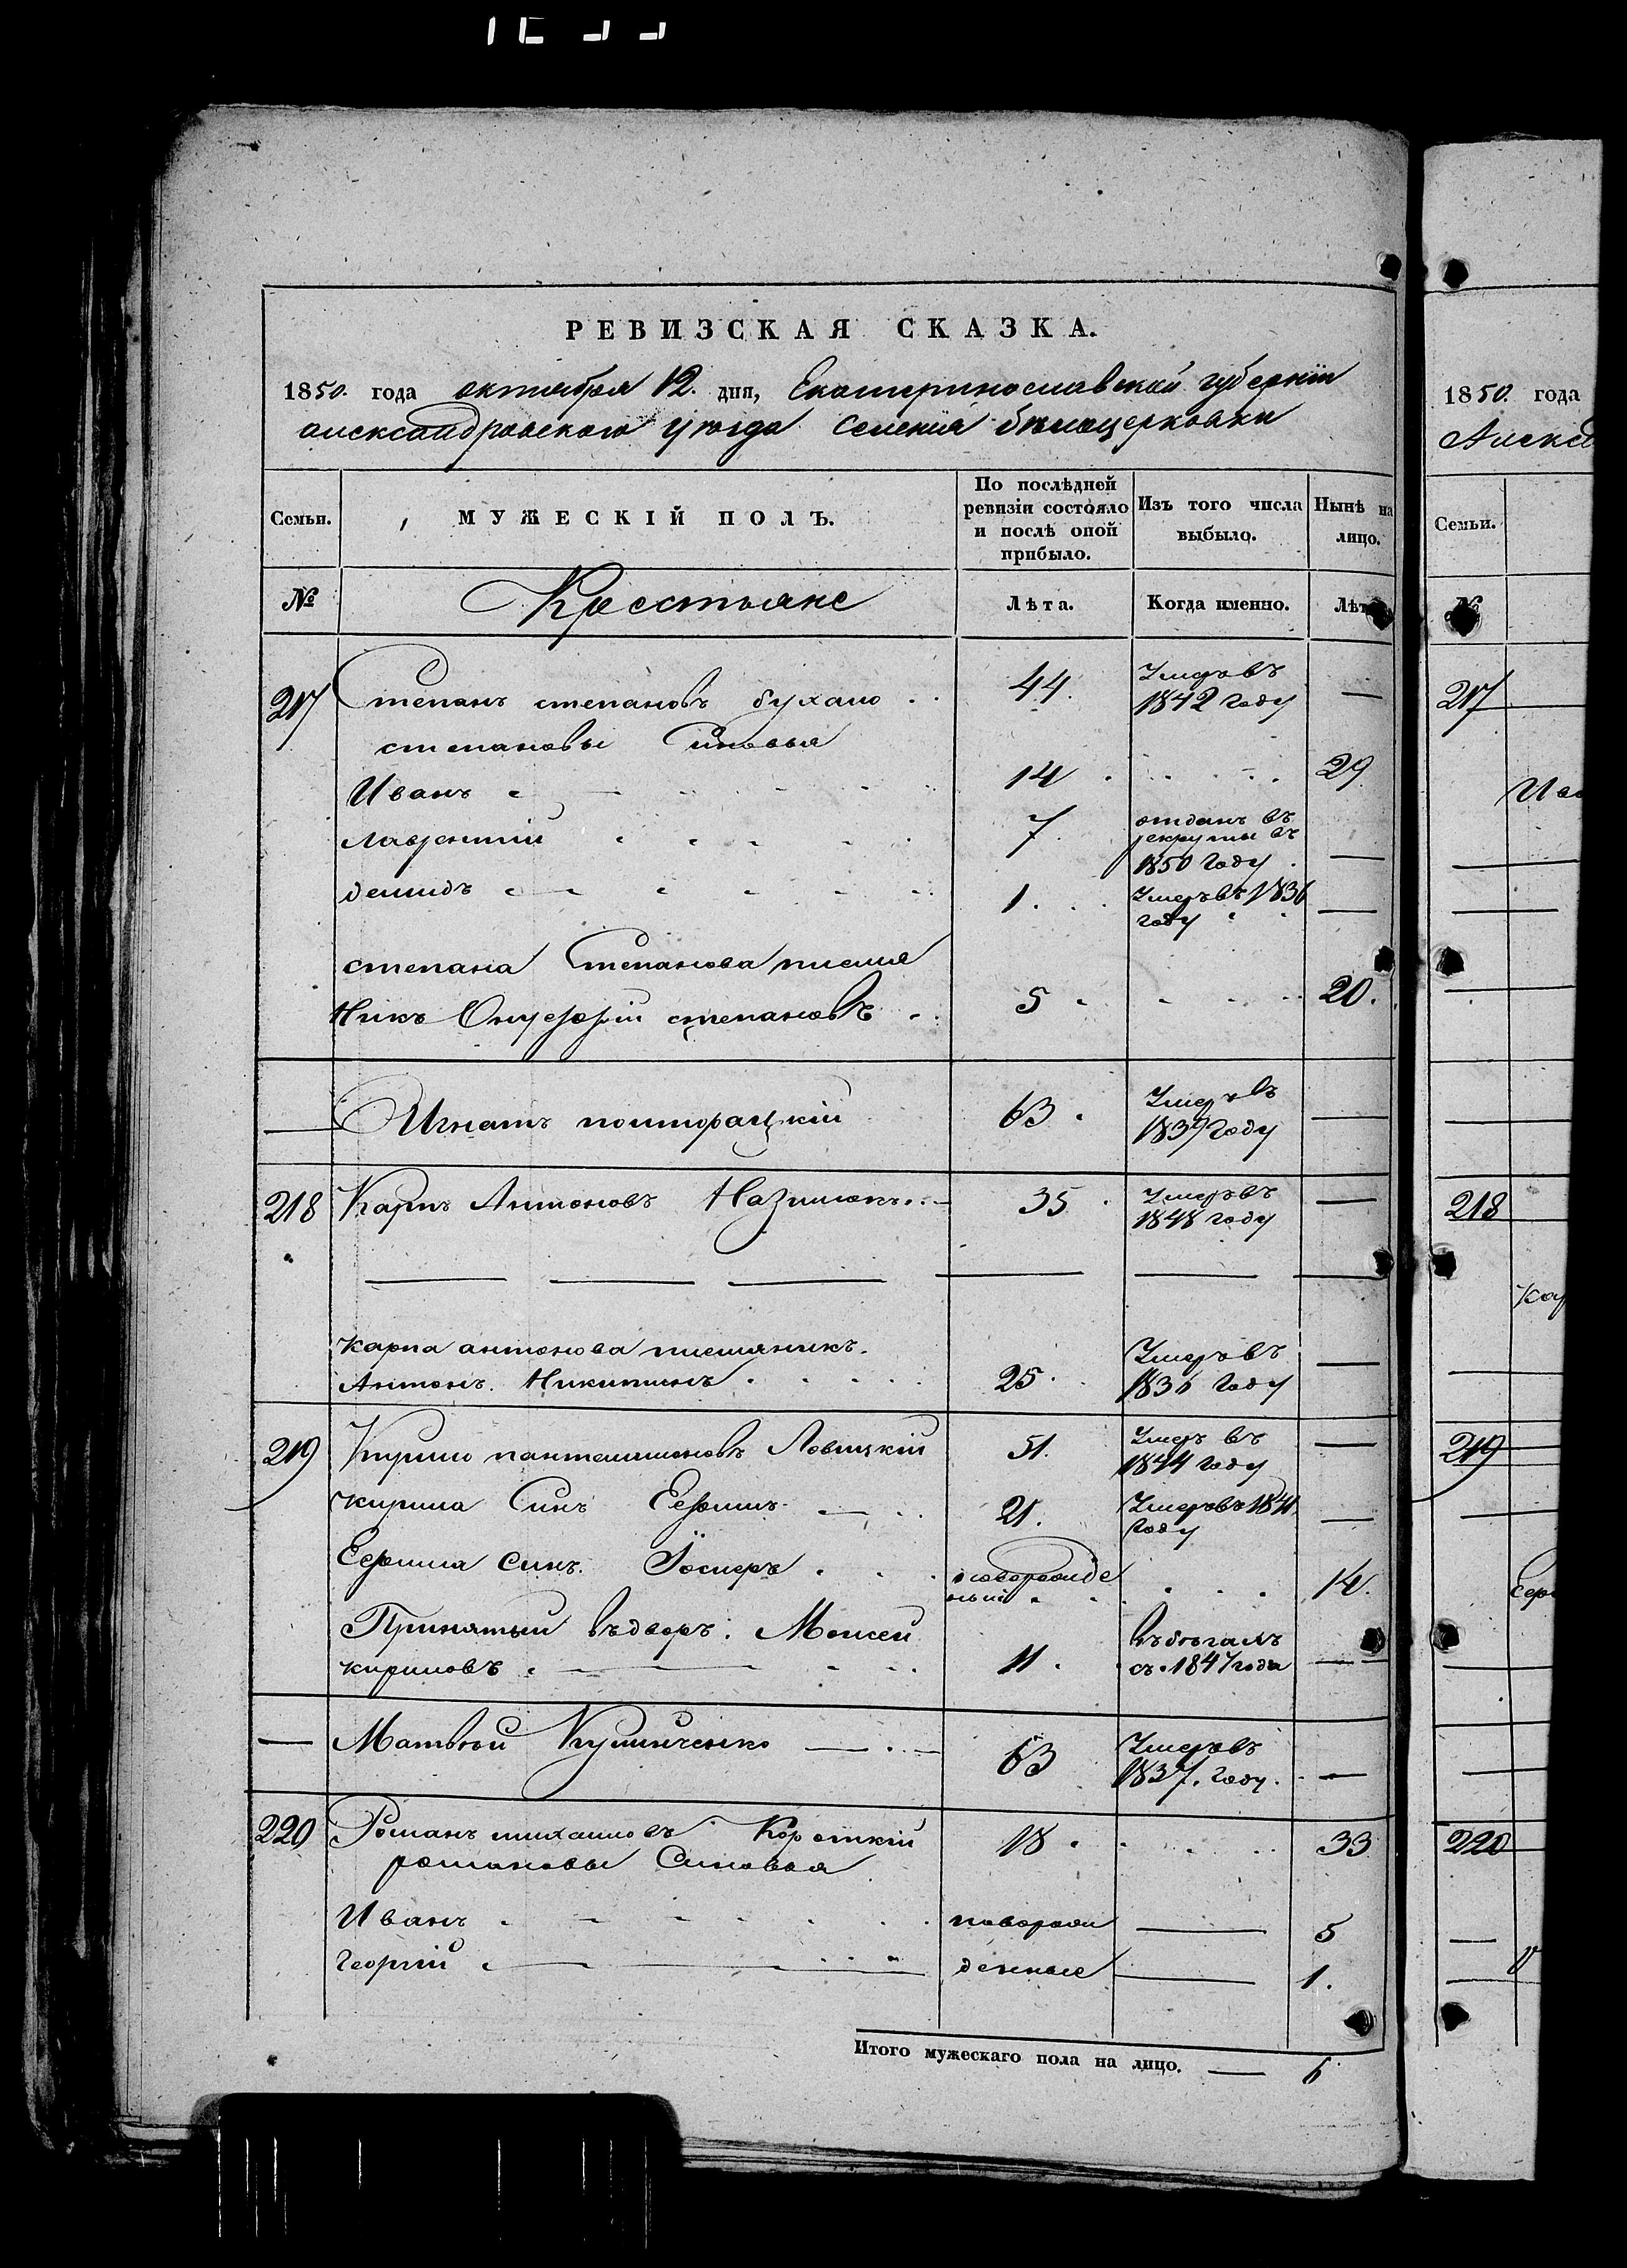 РЕВИЗСКАЯ СКАЗКА.
1850. года октября 12. дня, Екатеринославской губернiи
александровского уѣзда Селенiя бѣлоцерковки
Семьи.
МУЖЕСКIЙ ПОЛЪ.
По послѣдней
ревизiи состояло
и послѣ оной
прибыло.
Изъ того числа
выбыло.
Нынѣ на
лицо.
№ Крестьяне Лѣта. Когда именно. Лѣт
217 Степанъ степановъ бухало 44. Умеръ въ
1842 году —
степановы Синовья
Иванъ 14 29
лаврентiй 7. отданъ въ
рекруты въ
1850 году —
демидъ 1. Умеръ въ 1836
году —
степана Степанова племя
Никъ Онуфрiй степановъ 5 20.
— Игнатъ полторацкiй 63. Умеръ въ
1839 году —
218 Карпъ Антоновъ 35 Умеръ въ
1848 году —
карпа антонова племяникъ.
Антонъ Никитинъ 25. Умеръ въ
1836 году —
219 Кирило пантелимоновъ Ловицкiй 51. Умеръ въ
1844 году —
кирила Синъ Ефимъ 21. Умеръ въ 1841
году —
Ефима синъ. 14.
Принятый въ дворъ: Моисей
кириловъ 11. въ бѣгахъ
съ 1847 года —
— Матвѣй 63 Умеръ въ
1837. году. —
220 Романъ михайловъ Короткiй 18. 33
романовы Синовья
Иванъ новорож — 5
георгiй денные — 1.
Итого мужескаго пола на лицо. — 6
1850 года
Алекс
Семьи.
№
217
Ива
218
Кар
219
220